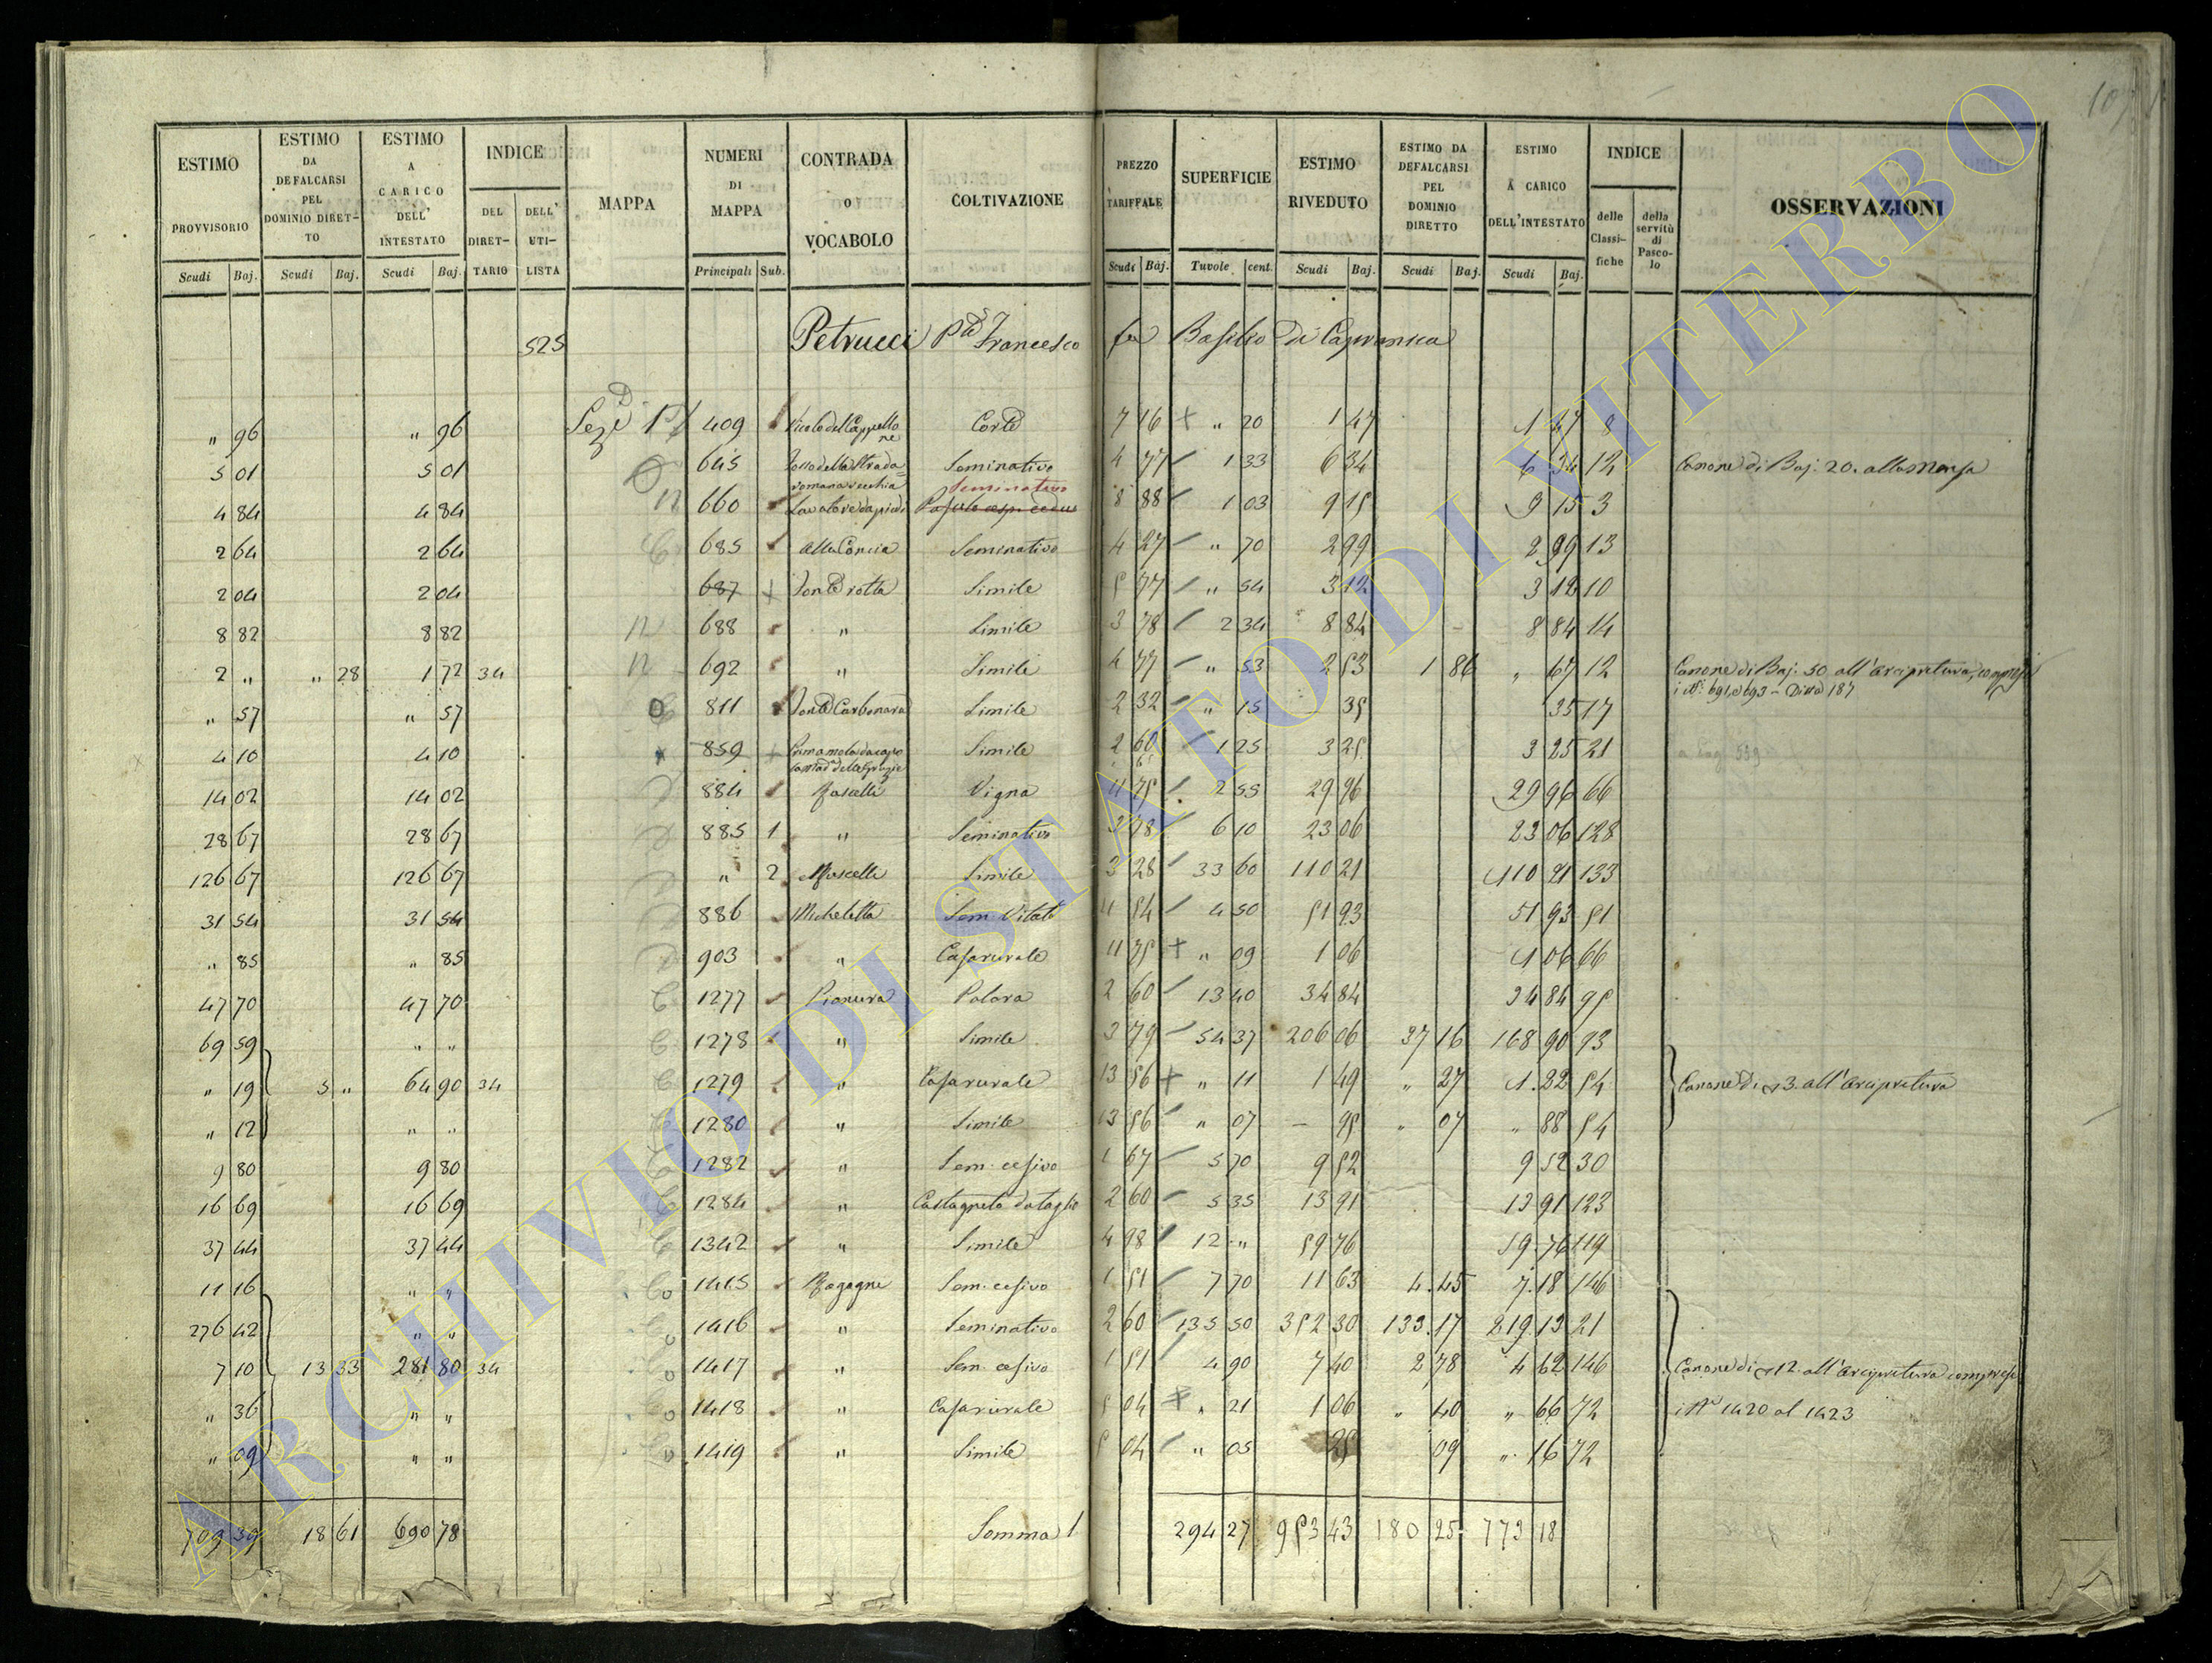 107
ESTIMO PROVVISORIO Scudi Baj. | ESTIMO DA DEFALCARSI PEL DOMINIO DIRETTO Scudi Baj. | ESTIMO A CARICO DELL' INTESTATO Scudi Baj. | INDICE DEL DIRETTARIO DELL' UTILISTA | MAPPA | NUMERI DI MAPPA Principali Sub. | CONTRADA O VOCABOLO | COLTIVAZIONE | PREZZO TARIFFALE Scudi Baj. | SUPERFICIE Tavole cent. | ESTIMO RIVEDUTO Scudi Baj. | ESTIMO DA DEFALCARSI PEL DOMINIO DIRETTO Scudi Baj. | ESTIMO A CARICO DELL'INTESTATO Scudi Baj. | INDICE delle Classifiche della servitù di Pascolo | OSSERVAZIONI
525 Petrucci Francesco fu Basilio di Capranica
" 96 " 96 Seze 409 Vicolo del Cappellone Corte 7 16 + " 20 1 47 1 47 8
5 01 5 01 645 Fosso della Strada romana vecchia Seminativo 4 77 1 33 6 34 6 34 12 Canone di Baj: 20. alla Mensa
Seminativo
4 84 4 84 n 660 Lavatore da piedi 8 88 1 03 9 15 9 15 3
2 64 2 64 685 alla Concia Seminativo 4 27 " 70 2 99 2 99 13
2 04 2 04 687 + Fonte rotta Simile 5 77 " 54 3 12 3 12 10
8 82 8 82 n 688 " Simile 3 78 2 34 8 84 8 84 14
2 " " 28 1 72 34 n 692 " Simile 4 77 " 53 2 53 1 86 " 67 12 Canone di Baj. 50 all'arcipretura, compresi
i Ni: 691, e 693 - Ditta 187
" 57 " 57 811 Fonte Carbonara Simile 2 32 " 15 35 35 17
4 10 4 10 859 + Prima mola da capo Simile 2 60 1 25 3 25 3 25 21
14 02 14 02 884 Vigna 11 75 2 55 29 96 29 96 66
28 67 28 67 885 1 " Seminativo 3 78 6 10 23 06 23 06 128
126 67 126 67 " 2 Simile 3 28 33 60 110 21 110 21 133
31 54 31 54 886 Micheletta Sem. Vitato 11 54 4 50 51 93 51 93 51
" 85 " 85 903 " Casa rurale 11 75 + " 09 1 06 1 06 66
47 70 47 70 1277 Pianura 2 60 13 40 34 84 34 84 95
69 59 " " 1278 " Simile 3 79 54 37 206 06 37 16 168 90 93
" 19 5 " 64 90 34 1279 " Casa rurale 13 56 + " 11 1 49 " 27 1.22 54 Canone di 3. all'arcipretura
" 12 " " 1280 " Simile 13 56 " 07 - 95 " 07 " 88 54
9 80 9 80 1282 " Sem. cesivo 1 67 5 70 9 52 9 52 30
16 69 16 69 1284 " Castagneto da taglio 2 60 5 35 13 91 13 91 123
37 44 37 44 1342 " Simile 4 98 12 " 59 76 59.76 119
11 16 " " 1415 Sem. cesivo 1 51 7 70 11 63 4.45 7.18 146
276 42 " " 1416 " Seminativo 2 60 135 50 352 30 133.17 219 13 21
7 10 13 33 281 80 34 1417 " Sem. cesivo 1 51 4 90 7 40 2 78 4 62 146 Canone di 12. all'Arcipretura compresi
" 36 " " 1418 " Casa rurale 5 04 + " 21 1 06 " 40 " 66 72 i Ni 1420 al 1423
" 09 " " 1419 " Simile 5 04 " 05 25 09 " 16 72
709 39 18 61 690 78 Somma 294 27 953 43 180 25 773 18
ARCHIVIO DI STATO DI VITERBO